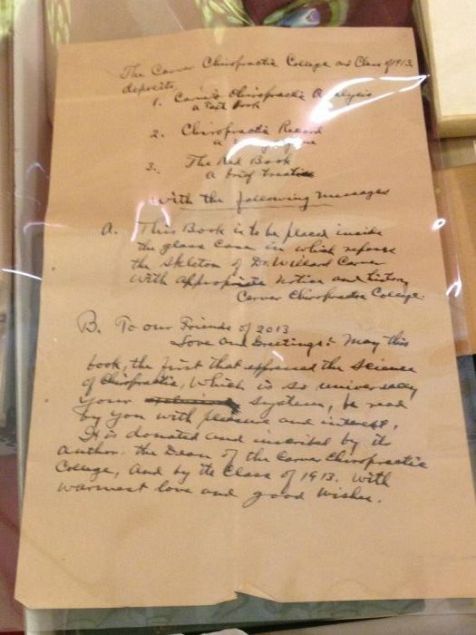 The Carver Chiropractic College and Class of 1913
deposits
1. Carver's Chiropractic Analysis
a Text Book
2. Chiropractic Record
a
3. The Red Book
a brief treatise
With the following messages
A. This Book is to be placed inside
the glass case in which repose
the skeleton of Dr. Willard Carver
with appropriate notice and history
Carver Chiropractic College
B. To our Friends of 2013
Love and Greetings: May this
book, the first that expressed the science
of Chiropractic, which is so universally
your system, be read
by you with pleasure and interest,
It is donated and inscribed by its
author. the Dean of the Carver Chiropractic
College, and by the Class of 1913. With
warmest love and good wishes.